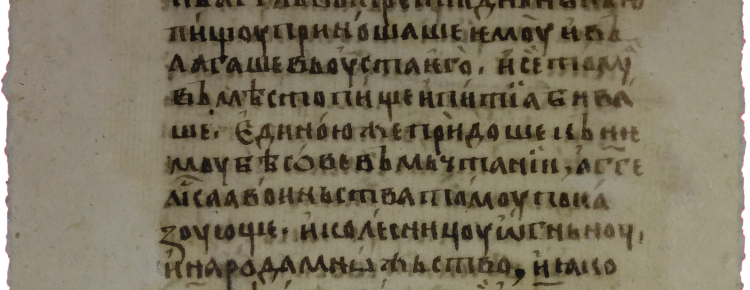 пищоу приношаше ѥмоу и въ
лагаше въ оуста ѥго. и се томꙋ
въ мѣсто пище и питїа бива
ше. Единою же прїидоше къ нѥ
моу бѣсове въ мьчтанїи, агг҃е
лска воиньства томоу пока
зоующе. и колесницоу ѡгньноу,
и народа мнѡжьство, и яко